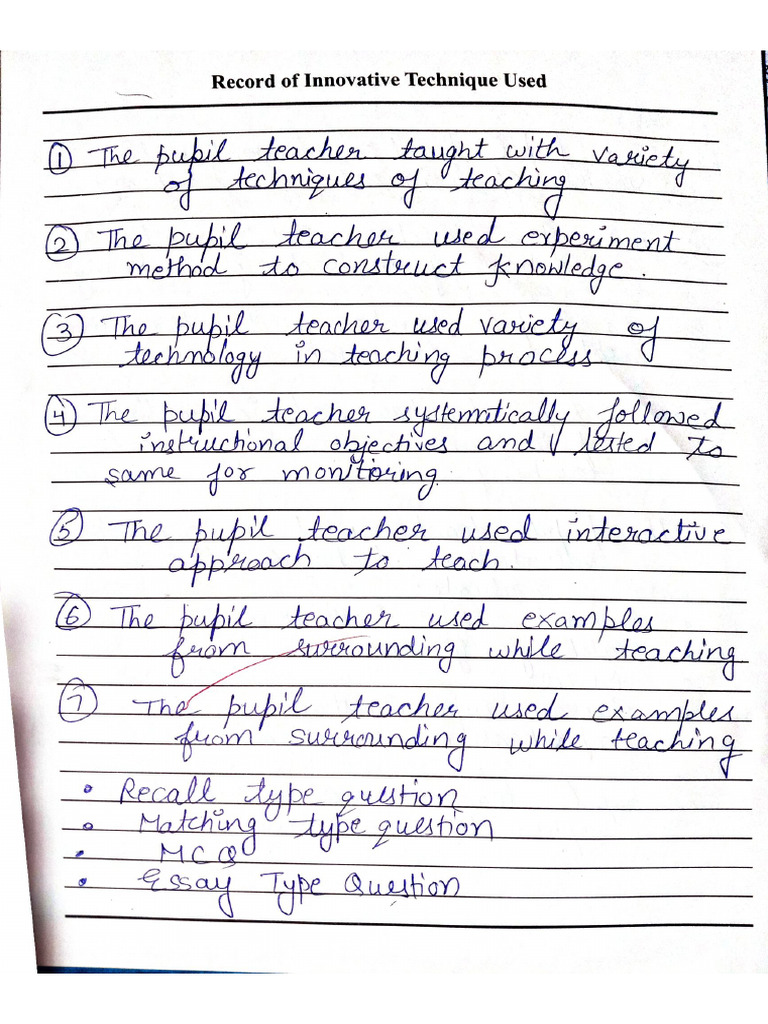 Record of Innovative Technique Used
① The pupil teacher taught with variety
of techniques of teaching
② The pupil teacher used experiment
method to construct knowledge.
③ The pupil teacher used variety of
technology in teaching process
④ The pupil teacher systematically followed
instructional objectives and tested to
same for monitoring.
⑤ The pupil teacher used interactive
approach to teach.
⑥ The pupil teacher used examples
from surrounding while teaching
⑦ The pupil teacher used examples
from surrounding while teaching
• Recall type question
• Matching type question
• MCQ
• Essay Type Question